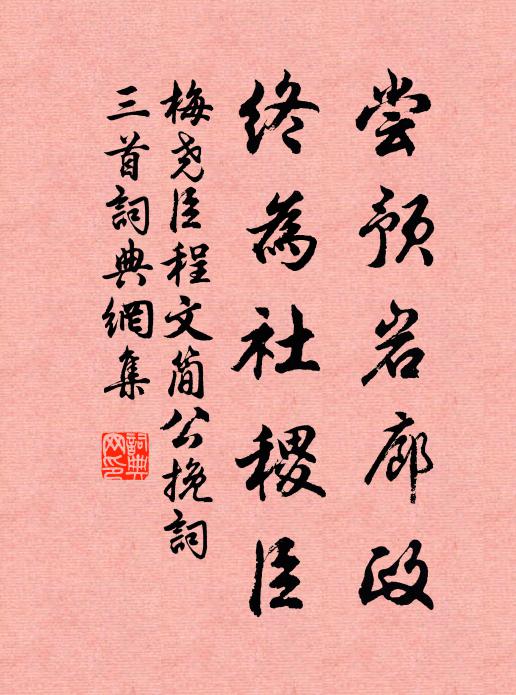 尝预岩廊政
终為社稷臣
梅尧臣程文简公挽詞
三首詞典網集
詞典网印